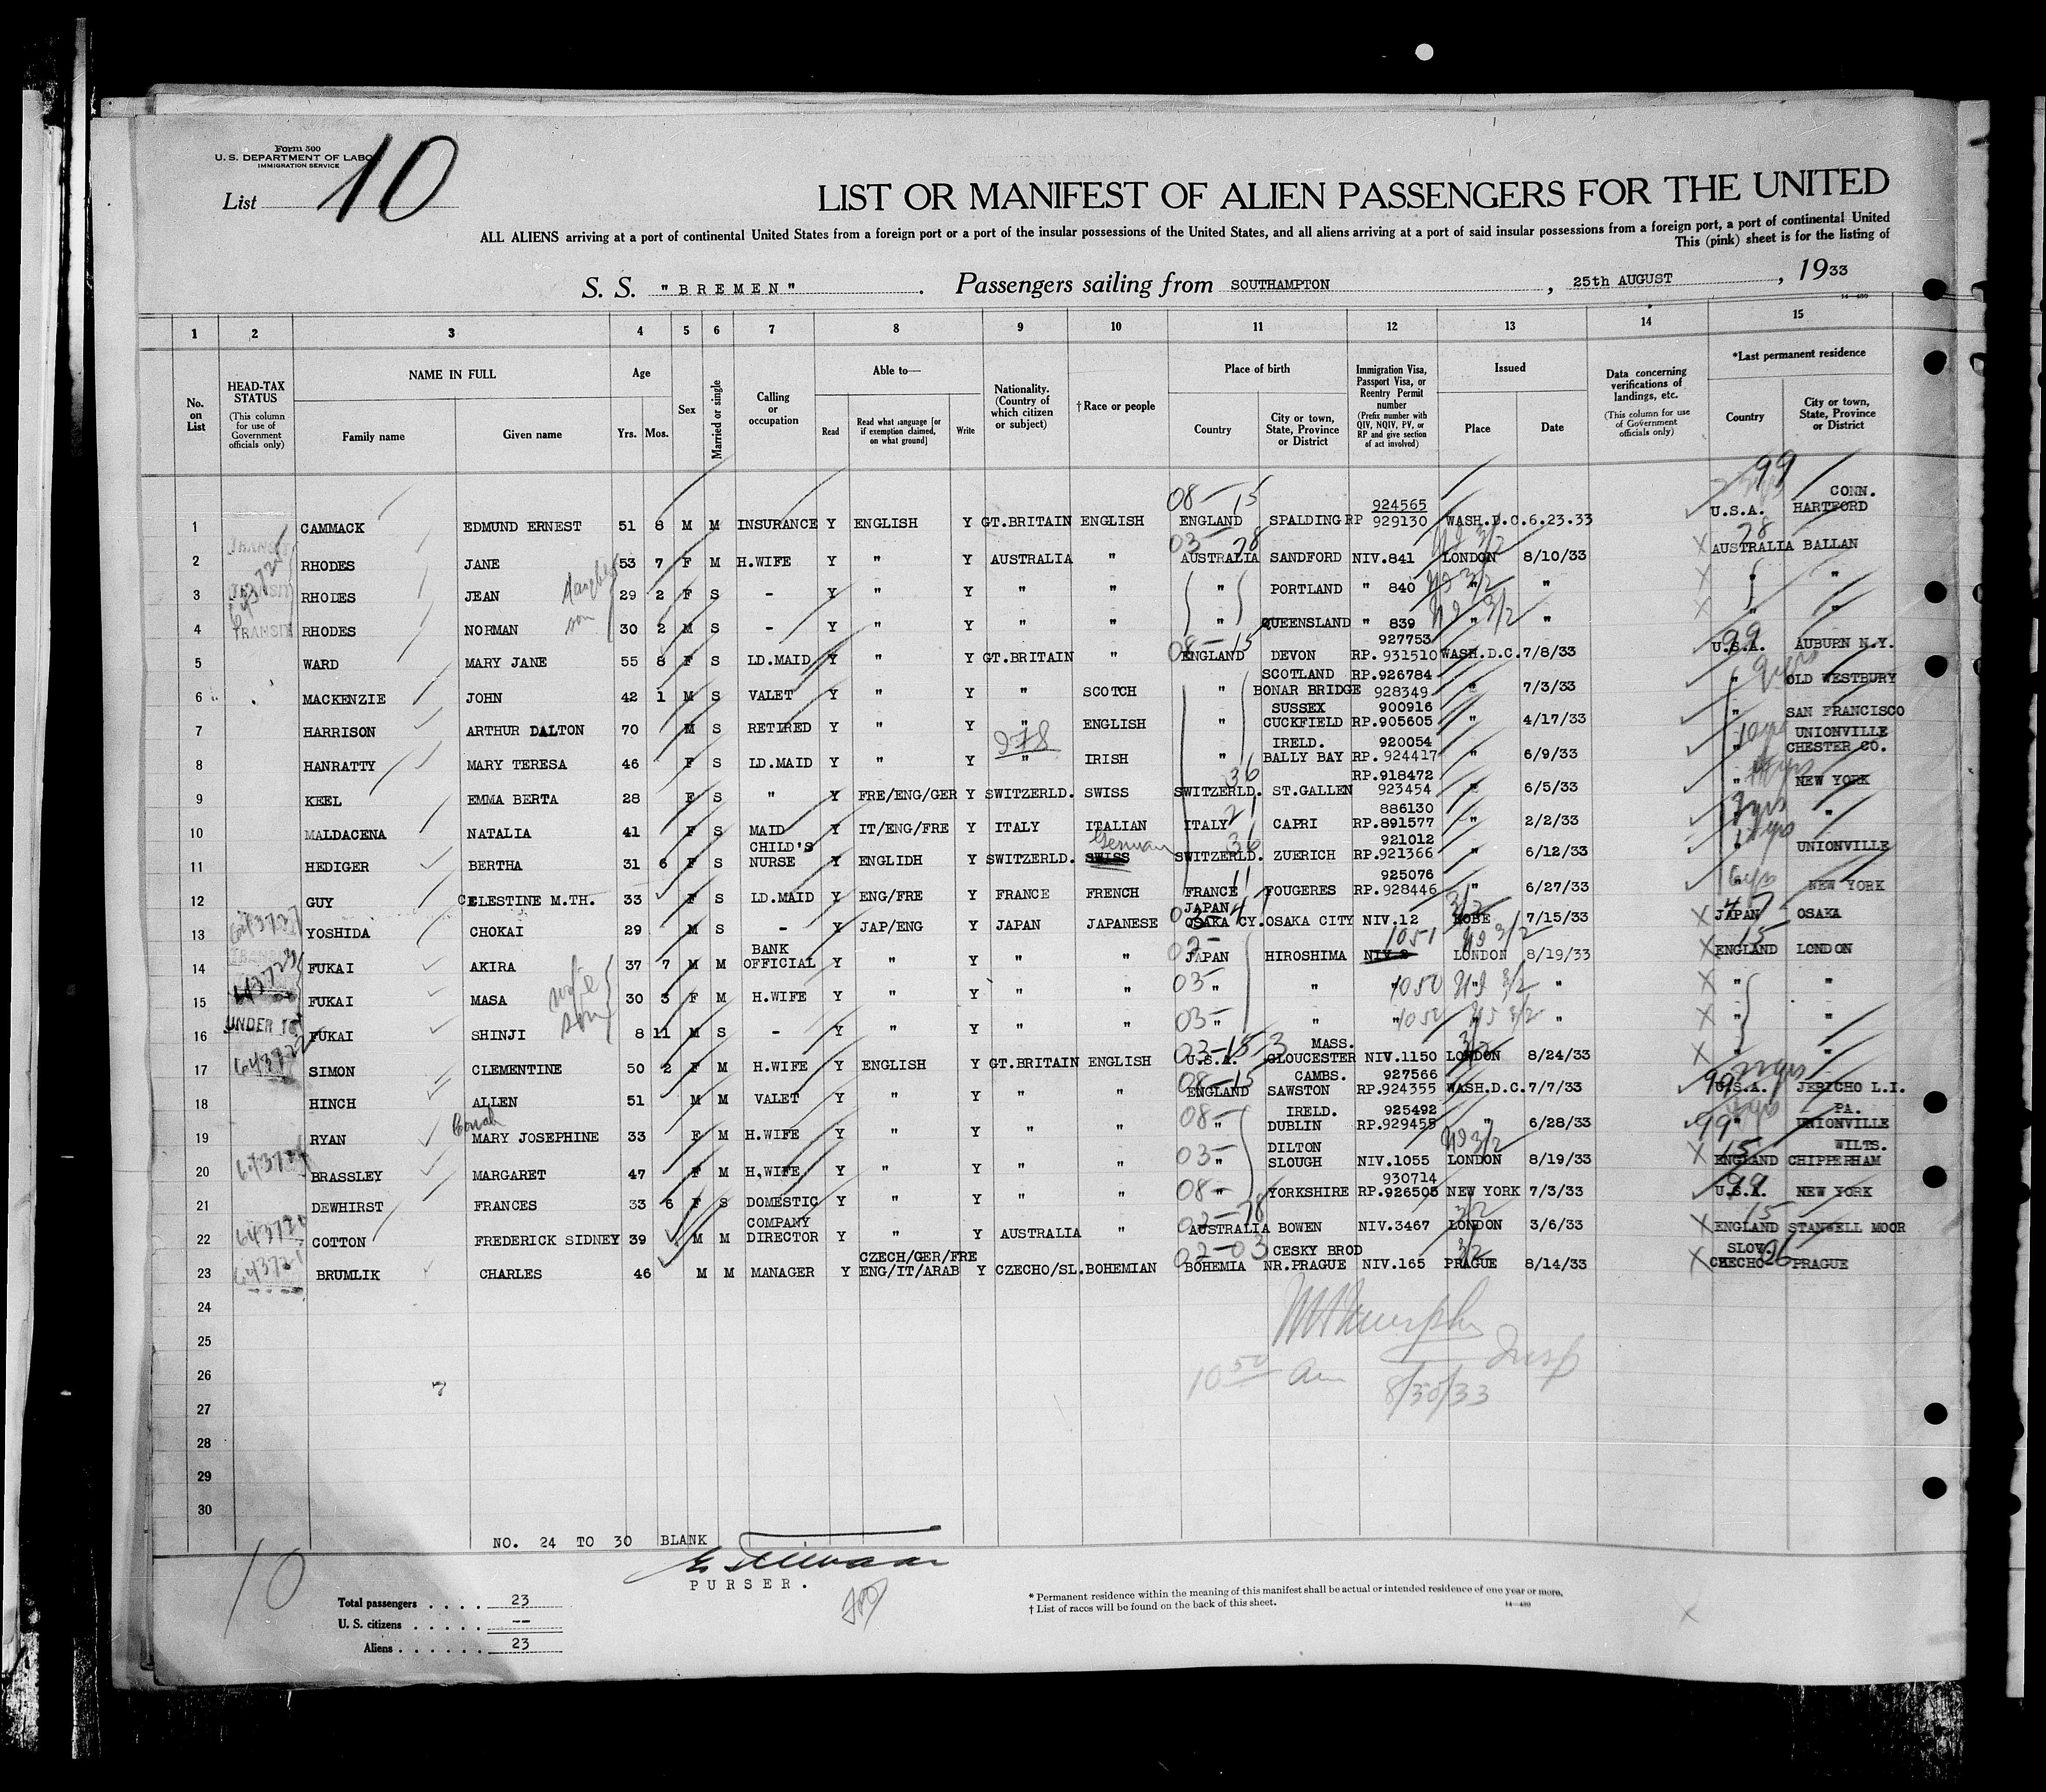 Form 500
U. S. DEPARTMENT OF LABOR
IMMIGRATION SERVICE
List 10
LIST OR MANIFEST OF ALIEN PASSENGERS FOR THE UNITED
ALL ALIENS arriving at a port of continental United States from a foreign port or a port of the insular possessions of the United States, and all aliens arriving at a port of said insular possessions from a foreign port, a port of continental United
This (pink) sheet is for the listing of
S. S. "BREMEN". Passengers sailing from SOUTHAMPTON, 25th AUGUST, 1933
14—430
1 2 3 4 5 6 7 8 9 10 11 12 13 14 15
No. on List
HEAD-TAX STATUS (This column for use of Government officials only)
NAME IN FULL Family name Given name
Age Yrs. Mos.
Sex
Married or single
Calling or occupation
Able to— Read Read what language [or if exemption claimed, on what ground] Write
Nationality. (Country of which citizen or subject)
†Race or people
Place of birth Country City or town, State, Province or District
Immigration Visa, Passport Visa, or Reentry Permit number (Prefix number with QIV, NQIV, PV, or RP and give section of act involved)
Issued Place Date
Data concerning verifications of landings, etc. (This column for use of Government officials only)
*Last permanent residence Country City or town, State, Province or District
08-15 924565 99 CONN.
1 CAMMACK EDMUND ERNEST 51 8 M M INSURANCE Y ENGLISH Y GT.BRITAIN ENGLISH ENGLAND SPALDING RP 929130 WASH.D.C. 6.23.33 U.S.A. HARTFORD
TRANSIT 03-28 28
2 RHODES JANE 53 7 F M H.WIFE Y " Y AUSTRALIA " AUSTRALIA SANDFORD NIV.841 LONDON 8/10/33 X AUSTRALIA BALLAN
3 RHODES JEAN daughter 29 2 F S - Y " Y " " " PORTLAND " 840 " " X " "
4 TRANSIT RHODES NORMAN son 30 2 M S - Y " Y " " " QUEENSLAND " 839 " " X " "
08-15 927753 99
5 WARD MARY JANE 55 8 F S LD.MAID Y " Y GT.BRITAIN " ENGLAND DEVON RP.931510 WASH.D.C. 7/8/33 U.S.A. AUBURN N.Y.
SCOTLAND RP.926784 9 yrs
6 MACKENZIE JOHN 42 1 M S VALET Y " Y " SCOTCH " BONAR BRIDGE 928349 " 7/3/33 " OLD WESTBURY
SUSSEX 900916
7 HARRISON ARTHUR DALTON 70 M S RETIRED Y " Y " ENGLISH " CUCKFIELD RP.905605 " 4/17/33 " SAN FRANCISCO
IRELD. 920054 10 yrs UNIONVILLE
8 HANRATTY MARY TERESA 46 F S LD.MAID Y " Y " IRISH " BALLY BAY RP.924417 " 6/9/33 " CHESTER CO.
36 RP.918472
9 KEEL EMMA BERTA 28 F S " Y FRE/ENG/GER Y SWITZERLD. SWISS SWITZERLD. ST.GALLEN 923454 " 6/5/33 " NEW YORK
21 886130
10 MALDACENA NATALIA 41 F S MAID Y IT/ENG/FRE Y ITALY ITALIAN ITALY CAPRI RP.891577 " 2/2/33 " "
CHILD'S German 36 921012
11 HEDIGER BERTHA 31 6 F S NURSE Y ENGLIDH Y SWITZERLD. SWISS SWITZERLD. ZUERICH RP.921366 " 6/12/33 " UNIONVILLE
11 925076 6 yrs
12 GUY CELESTINE M.TH. 33 F S LD.MAID Y ENG/FRE Y FRANCE FRENCH FRANCE FOUGERES RP.928446 " 6/27/33 " NEW YORK
JAPAN 3/2 47
13 YOSHIDA CHOKAI 29 M S - Y JAP/ENG Y JAPAN JAPANESE OSAKA CY. OSAKA CITY NIV.12 KOBE 7/15/33 X JAPAN OSAKA
BANK 02- 1051 15
14 FUKAI AKIRA 37 7 M M OFFICIAL Y " Y " " JAPAN HIROSHIMA LONDON 8/19/33 X ENGLAND LONDON
15 FUKAI MASA wife 30 3 F M H.WIFE Y " Y " " 03- " " " 1050 " " X " "
16 UNDER 16 FUKAI SHINJI son 8 11 M S - Y " Y " " 03- " " " " " X " "
MASS. 3/2
17 SIMON CLEMENTINE 50 2 F M H.WIFE Y ENGLISH Y GT.BRITAIN ENGLISH U.S.A. GLOUCESTER NIV.1150 LONDON 8/24/33 X " "
08-15 CAMBS. 927566
18 HINCH ALLEN 51 M M VALET Y " Y " " ENGLAND SAWSTON RP.924355 WASH.D.C. 7/7/33 99 U.S.A. JERICHO L.I.
08- IRELD. 925492 PA.
19 RYAN MARY JOSEPHINE 33 F M H.WIFE Y " Y " " " DUBLIN RP.929455 " 6/28/33 99 " UNIONVILLE
03- DILTON 15 WILTS.
20 BRASSLEY MARGARET 47 F M H,WIFE Y " Y " " " SLOUGH NIV.1055 LONDON 8/19/33 X ENGLAND CHIPPERHAM
08- 930714 99
21 DEWHIRST FRANCES 33 6 F S DOMESTIC Y " Y " " " YORKSHIRE RP.926505 NEW YORK 7/3/33 U.S.A. NEW YORK
COMPANY 3/2 15
22 COTTON FREDERICK SIDNEY 39 M M DIRECTOR Y " Y AUSTRALIA " AUSTRALIA BOWEN NIV.3467 LONDON 3/6/33 X ENGLAND STANWELL MOOR
CZECH/GER/FRE 02-03 CESKY BROD 3/2 SLOV. 06
23 BRUMLIK CHARLES 46 M M MANAGER Y ENG/IT/ARAB Y CZECHO/SL. BOHEMIAN BOHEMIA NR.PRAGUE NIV.165 PRAGUE 8/14/33 X CZECHO- PRAGUE
24
25
26
27
28
29
30
10 50 am 8/30/33 Insp
NO. 24 TO 30 BLANK
PURSER.
10
Total passengers . . . . 23
U. S. citizens . . . . . --
Aliens . . . . . . 23
* Permanent residence within the meaning of this manifest shall be actual or intended residence of one year or more.
† List of races will be found on the back of this sheet.
14—430